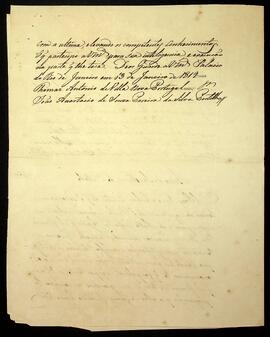 com a ultima, elevando o competente conhecimento.
O q participo a Vmce para sua intelligencia, e execução
da parte q lhe toca. Deos Guarde a Vmce Palacio
do Rio de Janeiro em 13 de Janeiro de 1818
Thomaz Antonio de Villa Nova Portugal
João Anastacio de Souza Pereira da Silva Portilho